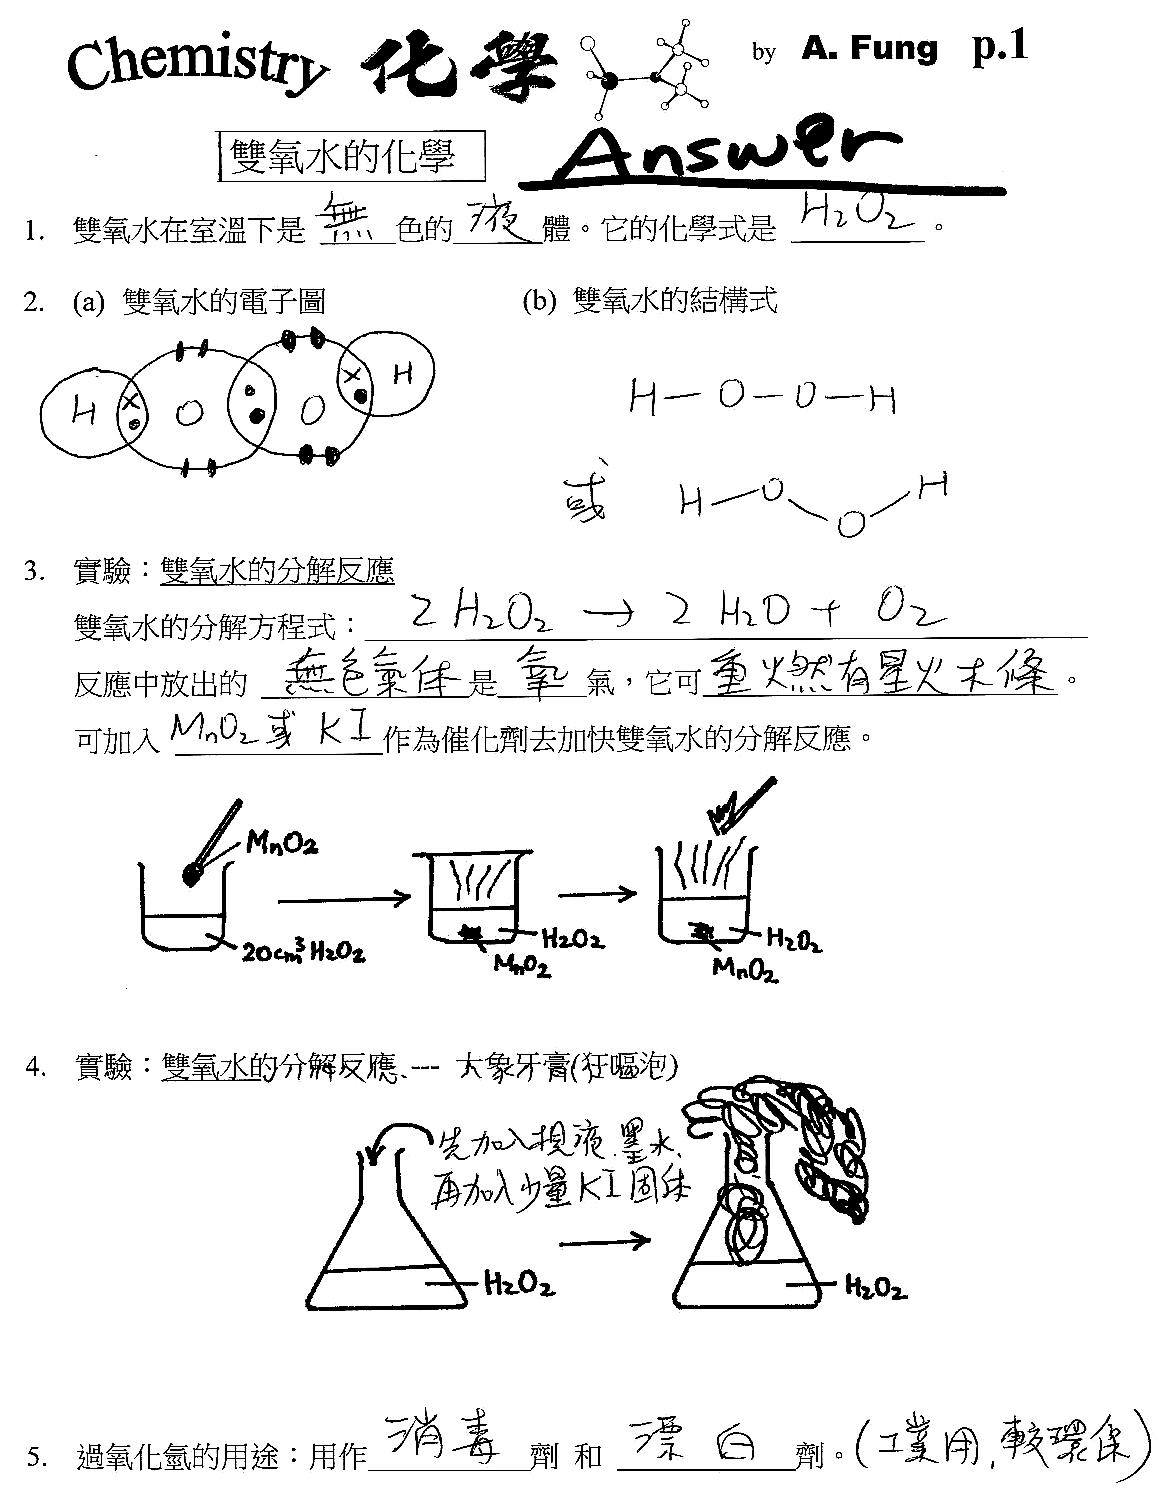 Chemistry 化學 by A. Fung p.1
雙氧水的化學 Answer
1. 雙氧水在室溫下是 無 色的 液 體。它的化學式是 H₂O₂ 。
2. (a) 雙氧水的電子圖 (b) 雙氧水的結構式
H O O H
H—O—O—H
或 H O O H
3. 實驗：雙氧水的分解反應
雙氧水的分解方程式： 2H₂O₂ → 2H₂O + O₂
反應中放出的 無色氣体 是 氧 氣，它可 重火燃有星火木條 。
可加入 MnO₂或 KI 作為催化劑去加快雙氧水的分解反應。
MnO₂
20cm³ H₂O₂
H₂O₂
MnO₂
H₂O₂
MnO₂
4. 實驗：雙氧水的分解反應 --- 大象牙膏(狂嘔泡)
先加入梘液、墨水、
再加入少量KI固体
H₂O₂
H₂O₂
5. 過氧化氫的用途：用作 消毒 劑 和 漂白 劑。(工業用，較環保)